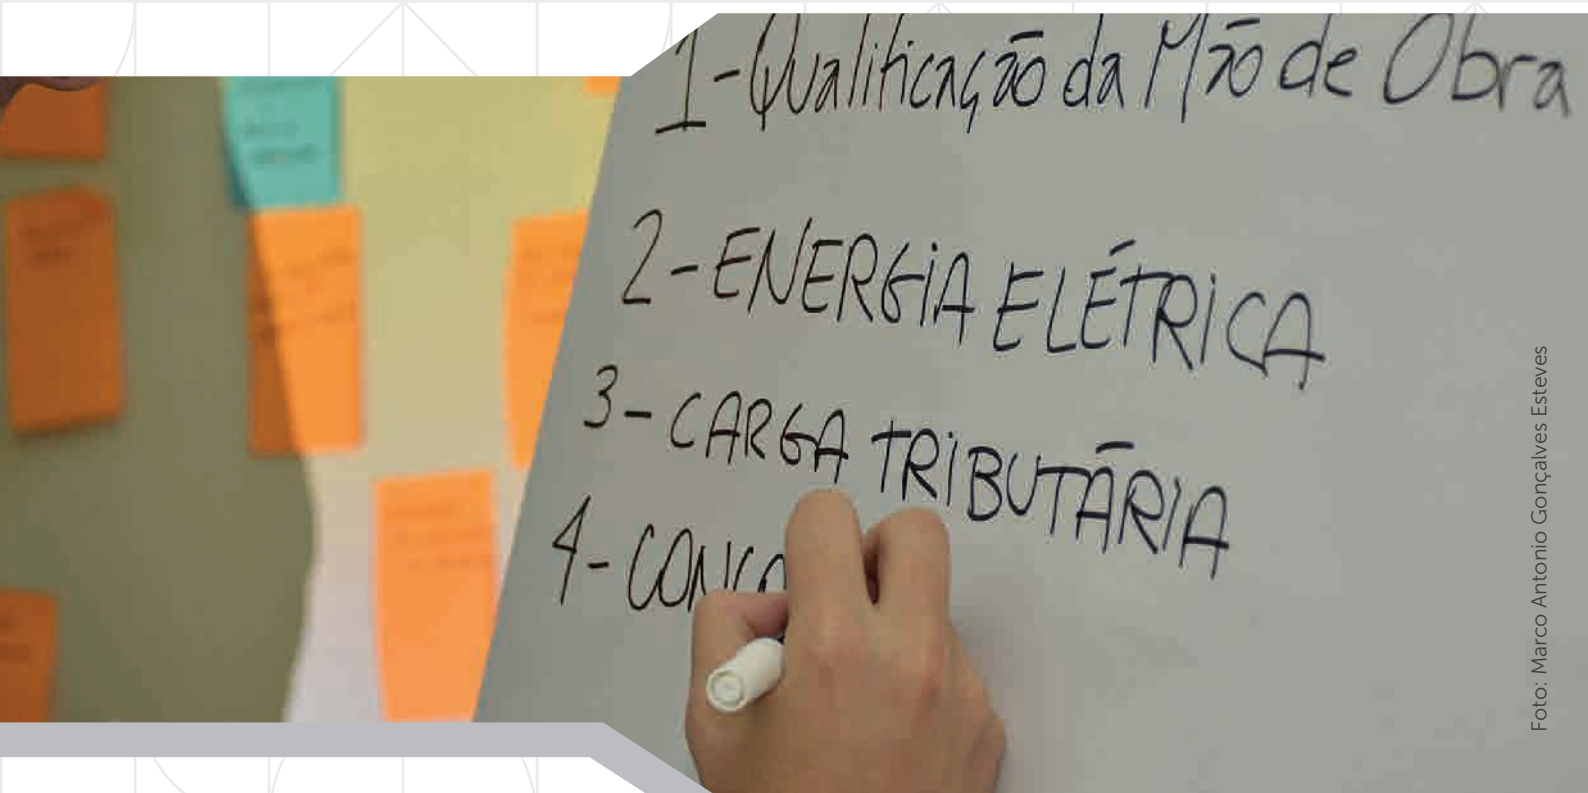 1-Qualificação da Mão de Obra
2-ENERGIA ELÉTRICA
3-CARGA TRIBUTÁRIA
4-
Foto: Marco Antonio Gonçalves Esteves